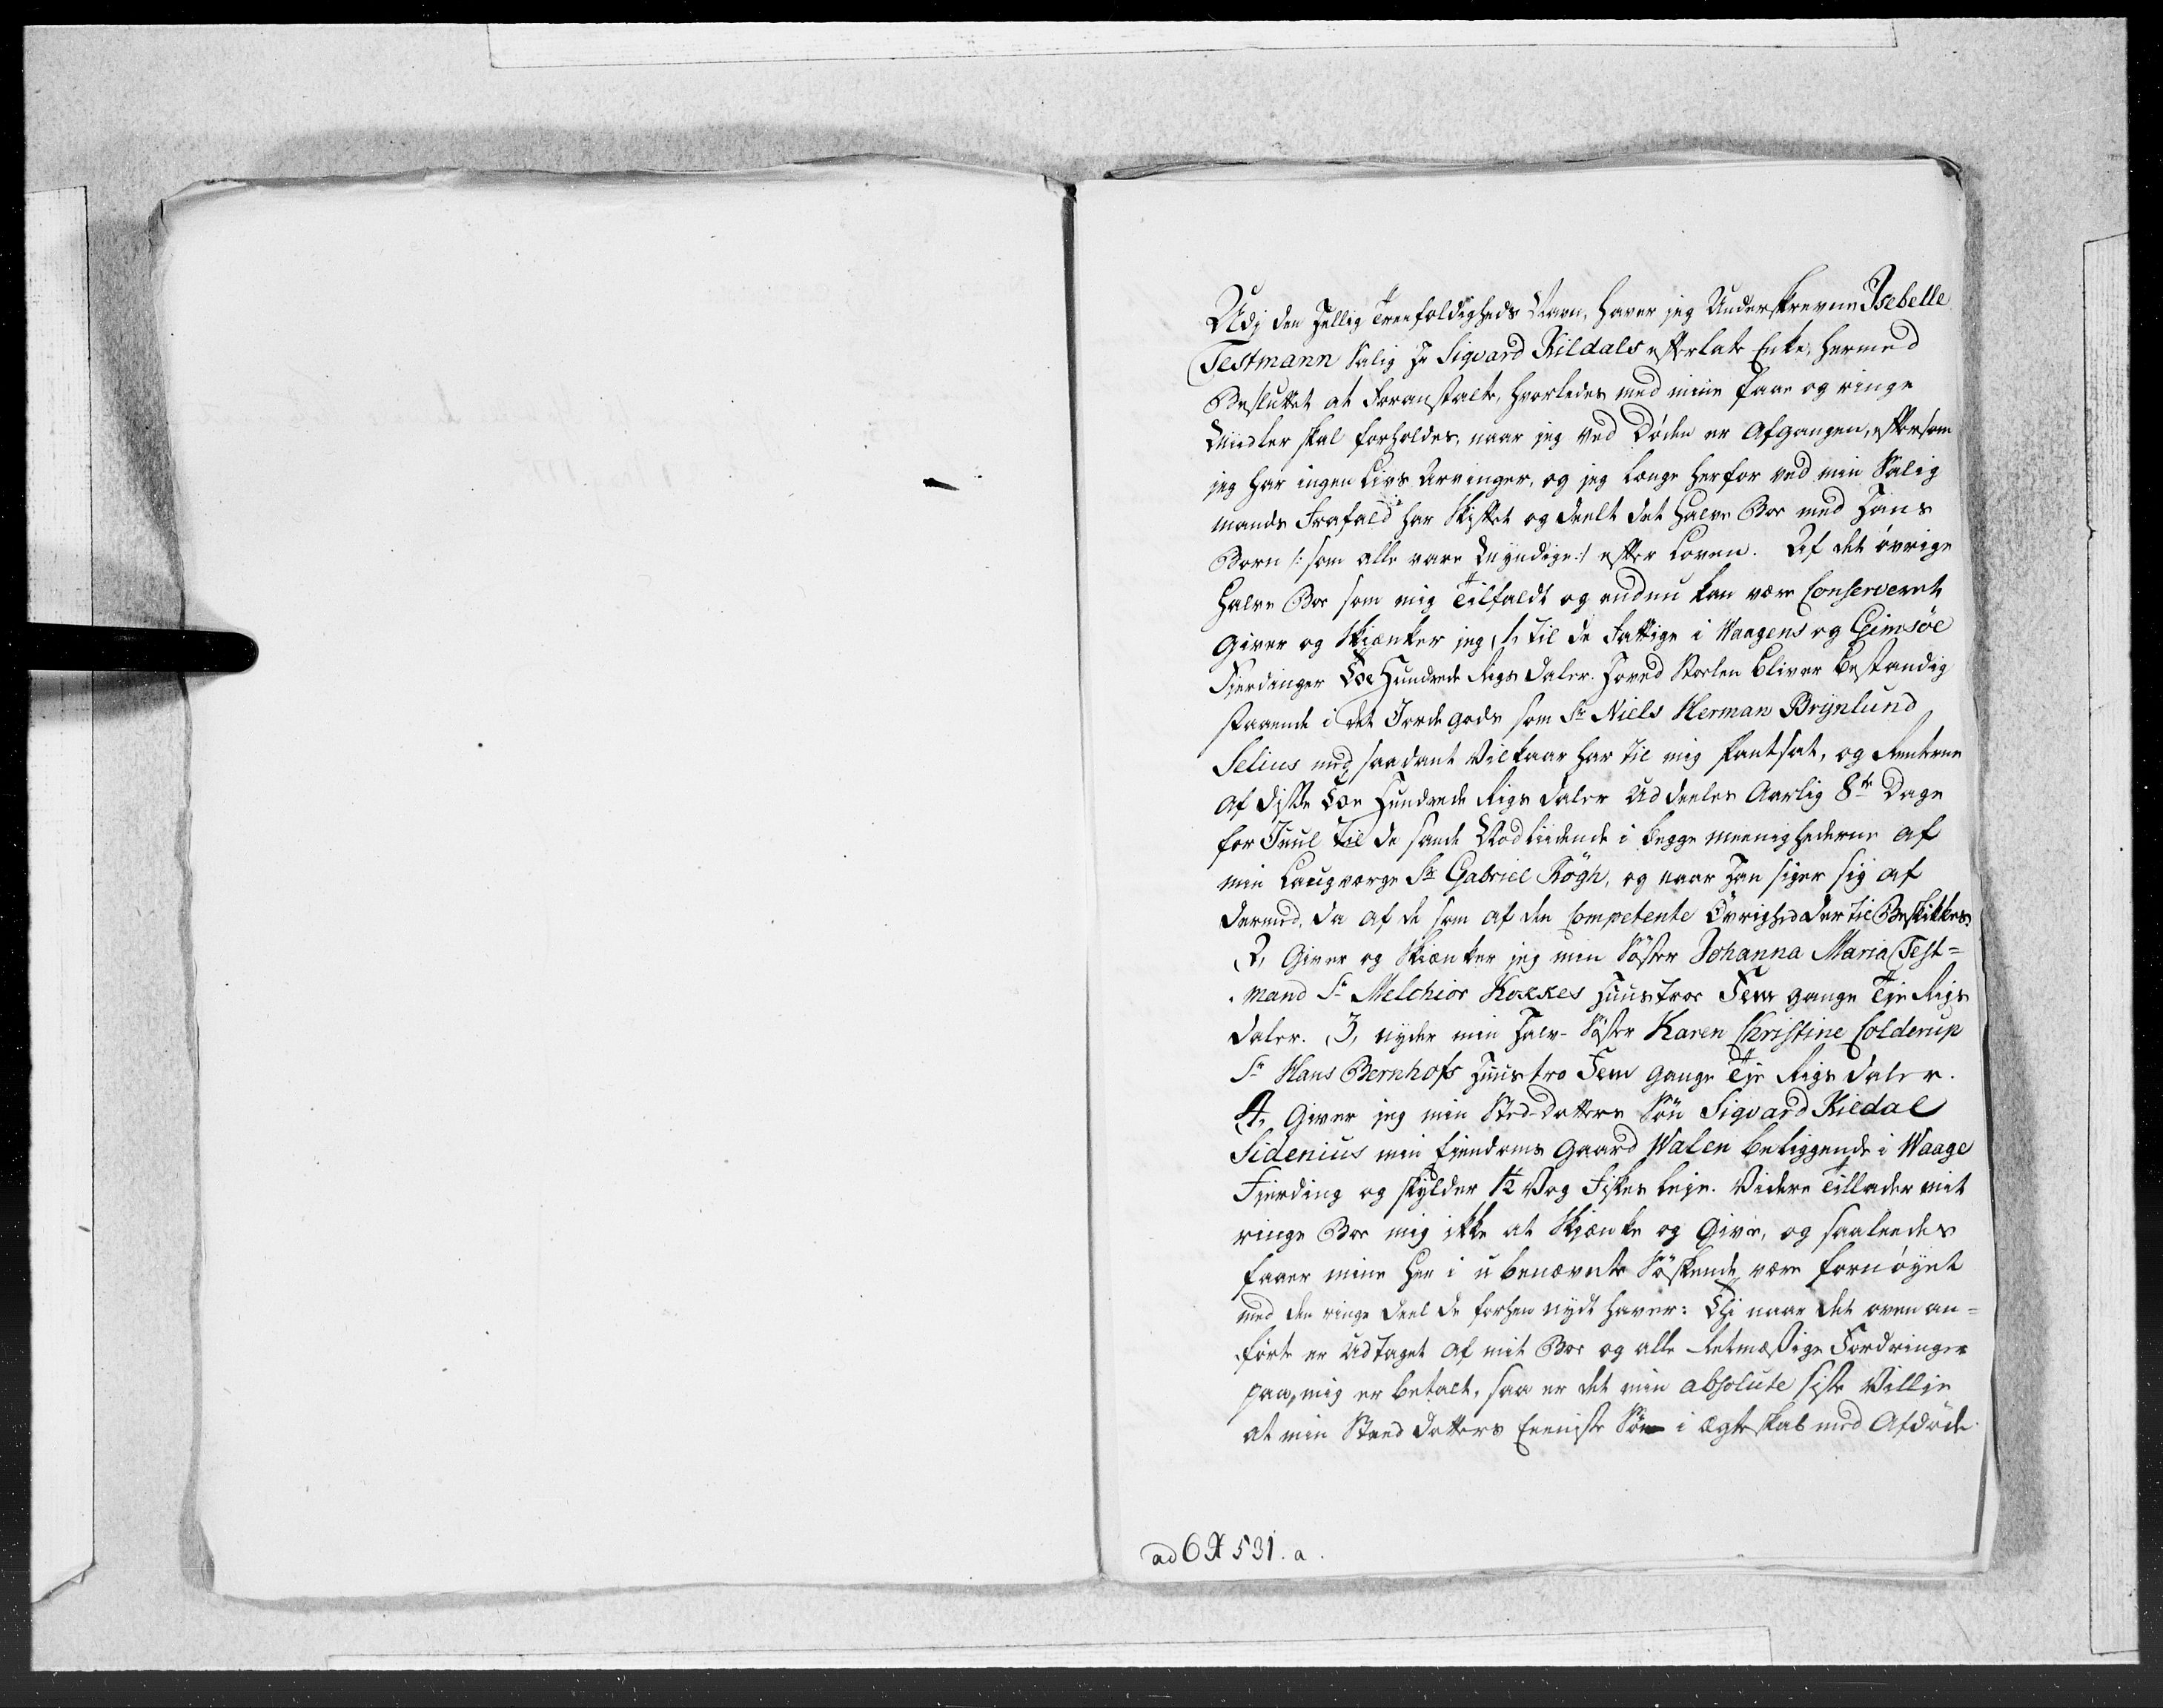 Udj den Hellig Treefoldigheds Navn, haver jeg Underskrevne Isebelle
Testmann Salig Hr Sigvard Kildals efterlatte Enke, hermed
Besluttet at Foranstalte, hvorledes med mine faae og ringe
Midler skal forholdes, naar jeg ved Döden er Afgangen, eftersom
jeg har ingen Livs Arvinger, og jeg længe herfor ved min Salig
mands Frafald har Skiftet og deelt det halve Boe med Hans
Börn /: som alle vare Myndige :/ efter Loven. Af det övrige
halve Boe som mig Tilfaldt og endnu kan være Conserveret
Giver og Skiænker jeg 1, til de Fattige i Waagens og Gimsöe
Fjerdinger Toe Hundrede Rigs daler. Hoved Stoelen bliver bestandig
staaende i det Jorde gods som Sr Niels Herman Brynlund
Selius med saadant Vilkaar har til mig Pantsat, og Renterne
af disse Toe Hundrede Rigs daler Uddeeles Aarlig 8te Dage
for Juul til de sande Nödliidende i begge meenighederne af
min Laugværge Sr Gabriel Rögh, og naar Han siger sig af
dermed, da af de som af den Competente Övrighed dertil Beskikkes
2, Giver og Skiænker jeg min Söster Johanna Maria Test=
mand Sr Melchior Kokkes Huustroe Fem gange Tje Rigs
daler. 3, nyder min Halv-Söster Karen Christine Colderup
Sr Hans Bernhofs Huustro Fem gange Tje Rigs daler.
4, Giver jeg min Sted-Datters Sön Sigvard Kildal
Sidenius min Eiendoms Gaard Walen beliggende i Waage
Fjerding og skylder 1/2 Vog Fiskes leje. Videre Tillader mit
ringe Boe mig ikke at Skjænke og Give, og saaleedes
faaer mine her i ubenævnte Söskende være fornöyet
med den ringe Deel de forhen nydt haver: Thi naar det oven an=
förte er udtaget af mit Boe og alle Retmæssige Fordringer
paa mig er betalt, saa er det min absolute siste Villje
at min Steed datters Eeniste Sön i Ægteskab med Afdöde
ad 6 A 531. a.